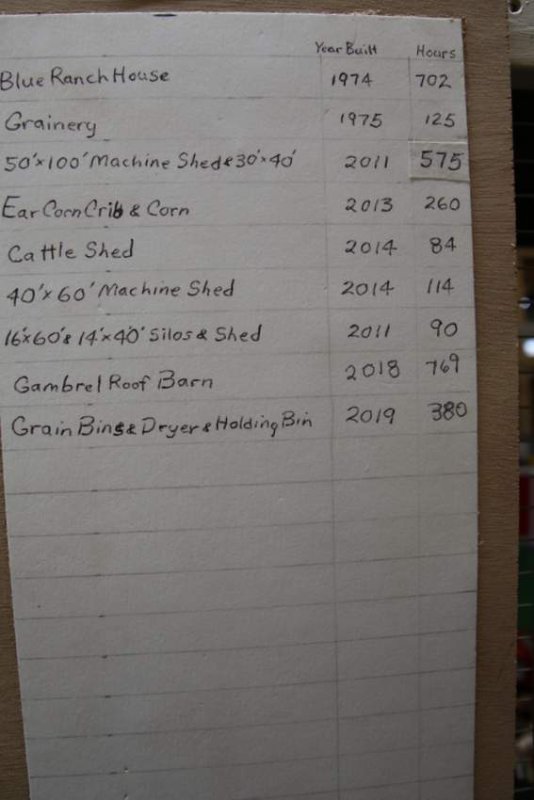 Year Built Hours
Blue Ranch House 1974 702
Grainery 1975 125
50'x100' Machine Shed & 30'x40' 2011 575
Ear Corn Crib & Corn 2013 260
Cattle Shed 2014 84
40'x60' Machine Shed 2014 114
16'x60' & 14'x40' Silos & Shed 2011 90
Gambrel Roof Barn 2018 769
Grain Bins & Dryer & Holding Bin 2019 380